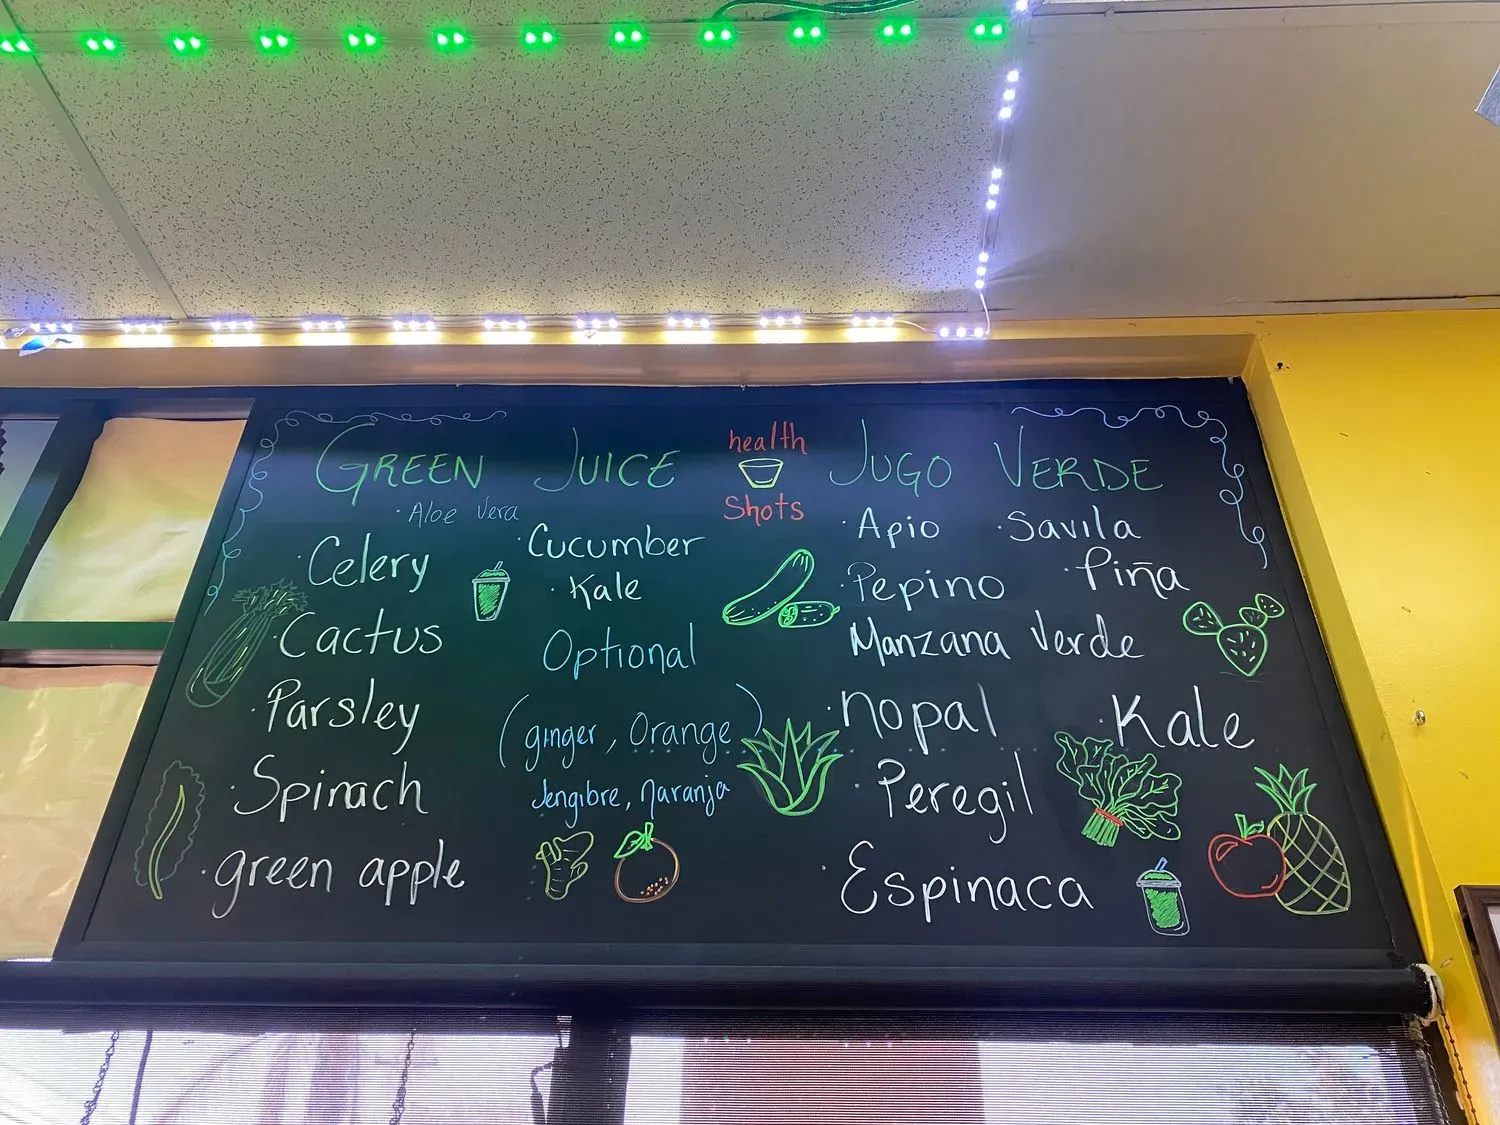 GREEN JUICE
· Aloe Vera
· Celery
· Cucumber
· Kale
· Cactus
Optional
· Parsley
(ginger, Orange)
Jengibre, naranja
· Spinach
· green apple
health
Shots
JUGO VERDE
· Apio · Savila
· Pepino · Piña
Manzana Verde
· nopal · Kale
· Peregil
· Espinaca